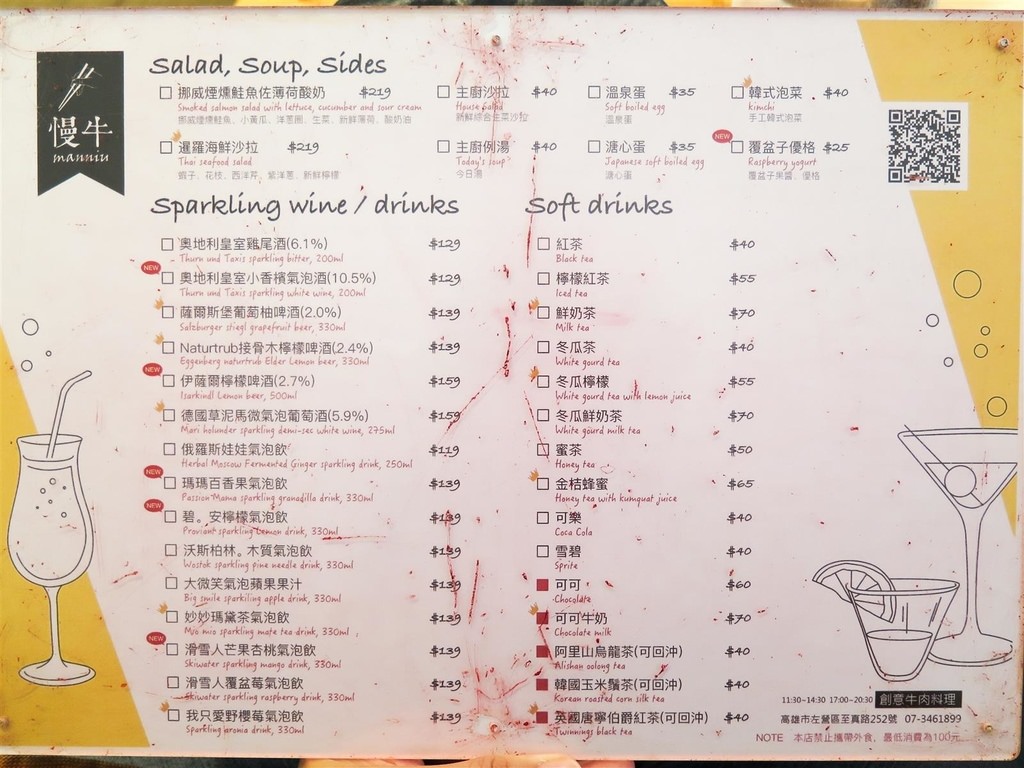 慢牛
manniu
Salad, Soup, Sides
挪威煙燻鮭魚佐薄荷酸奶 $219
Smoked salmon salad with lettuce, cucumber and sour cream
挪威煙燻鮭魚、小黃瓜、洋蔥圈、生菜、新鮮薄荷、酸奶油
主廚沙拉 $40
House Salad
新鮮綜合生菜沙拉
溫泉蛋 $35
Soft boiled egg
溫泉蛋
韓式泡菜 $40
kimchi
手工韓式泡菜
暹羅海鮮沙拉 $219
Thai seafood salad
蝦子、花枝、西洋芹、紫洋蔥、新鮮檸檬
主廚例湯 $40
Today's soup
今日湯
溏心蛋 $35
Japanese soft boiled egg
溏心蛋
NEW
覆盆子優格 $25
Raspberry yogurt
覆盆子果醬、優格
Sparkling wine / drinks
奧地利皇室雞尾酒(6.1%) $129
Thurn und Taxis sparkling bitter, 200ml
NEW
奧地利皇室小香檳氣泡酒(10.5%) $129
Thurn und Taxis sparkling white wine, 200ml
薩爾斯堡葡萄柚啤酒(2.0%) $139
Salzburger stiegl grapefruit beer, 330ml
Naturtrub接骨木檸檬啤酒(2.4%) $139
Eggenberg naturtrub Elder Lemon beer, 330ml
NEW
伊薩爾檸檬啤酒(2.7%) $159
Isarkindl Lemon beer, 500ml
德國草泥馬微氣泡葡萄酒(5.9%) $159
Mari holunder sparkling demi-sec white wine, 275ml
俄羅斯娃娃氣泡飲 $119
Herbal Moscow Fermented Ginger sparkling drink, 250ml
NEW
瑪瑪百香果氣泡飲 $139
Passion Mama sparkling granadilla drink, 330ml
NEW
碧。安檸檬氣泡飲 $139
Proviant sparkling Lemon drink, 330ml
沃斯柏林。木質氣泡飲 $139
Wostok sparkling pine needle drink, 330ml
大微笑氣泡蘋果果汁 $139
Big smile sparkiling apple drink, 330ml
妙妙瑪黛茶氣泡飲 $139
Mio mio sparkling mate tea drink, 330ml
NEW
滑雪人芒果杏桃氣泡飲 $139
Skiwater sparkling mango drink, 330ml
滑雪人覆盆莓氣泡飲 $139
Skiwater sparkling raspberry drink, 330ml
我只愛野櫻莓氣泡飲 $139
Sparkling aronia drink, 330ml
Soft drinks
紅茶 $40
Black tea
檸檬紅茶 $55
Iced tea
鮮奶茶 $70
Milk tea
冬瓜茶 $40
White gourd tea
冬瓜檸檬 $55
White gourd tea with lemon juice
冬瓜鮮奶茶 $70
White gourd milk tea
蜜茶 $50
Honey tea
金桔蜂蜜 $65
Honey tea with kumquat juice
可樂 $40
Coca Cola
雪碧 $40
Sprite
可可 $60
Chocolate
可可牛奶 $70
Chocolate milk
阿里山烏龍茶(可回沖) $40
Alishan oolong tea
韓國玉米鬚茶(可回沖) $40
Korean roasted corn silk tea
英國唐寧伯爵紅茶(可回沖) $40
Twinnings black tea
11:30~14:30 17:00~20:30 創意牛肉料理
高雄市左營區至真路252號 07-3461899
NOTE 本店禁止攜帶外食，最低消費為100元